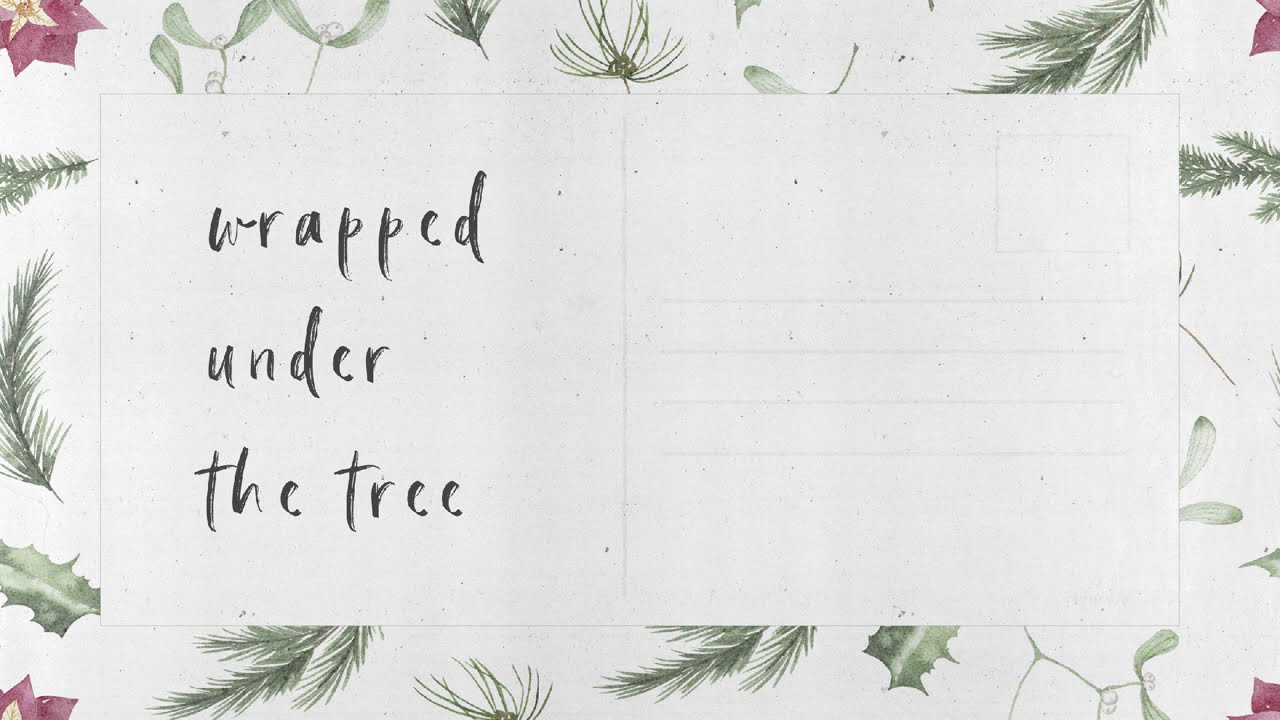 wrapped
under
the tree